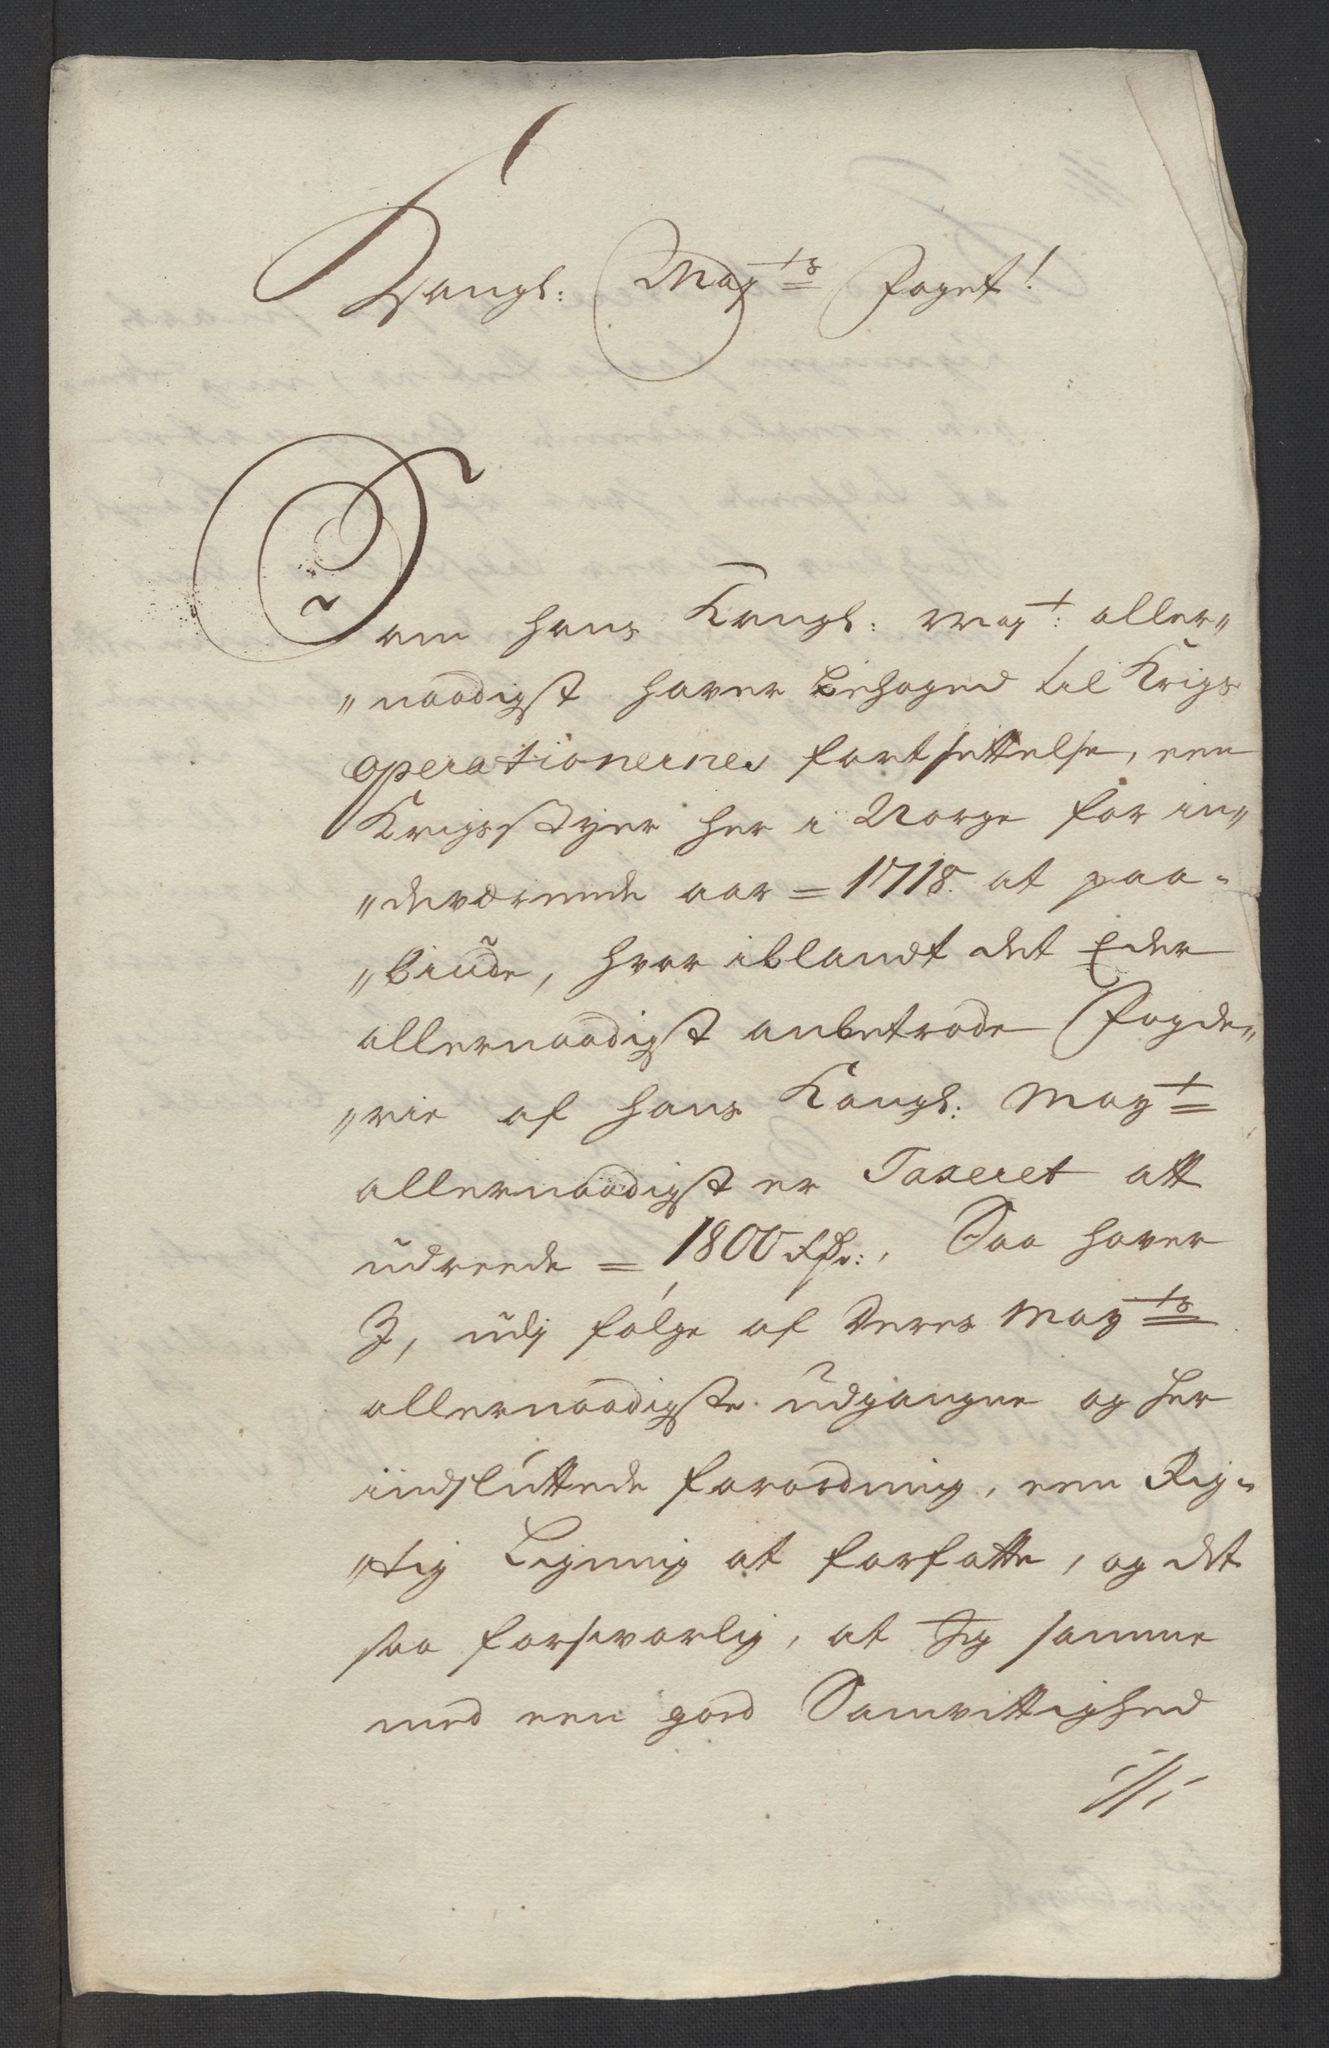 Kongl: May:ts Foget!
Som hans Kongl: May:t aller„
„naadigst haver behaged til Krigs
operationernes fortsettelse, een
Krigsstyer her i Norge for in„
„deværende aar = 1718. at paa„
„biude, hvor iblandt det Eder
allernaadigst anbetrode Fogde„
„rie af hans Kongl: May:t
allernaadigst er Taxeret att
udreede = 1800 rdr:, Saa haver
I, udj følge af Deres May:ts
allernaadigste udgangne og her
indsluttede forordning, een Rig„
„tig Ligning at forfatte, og det
saa forsvarlig, at I samme
med een goed Samvittighed